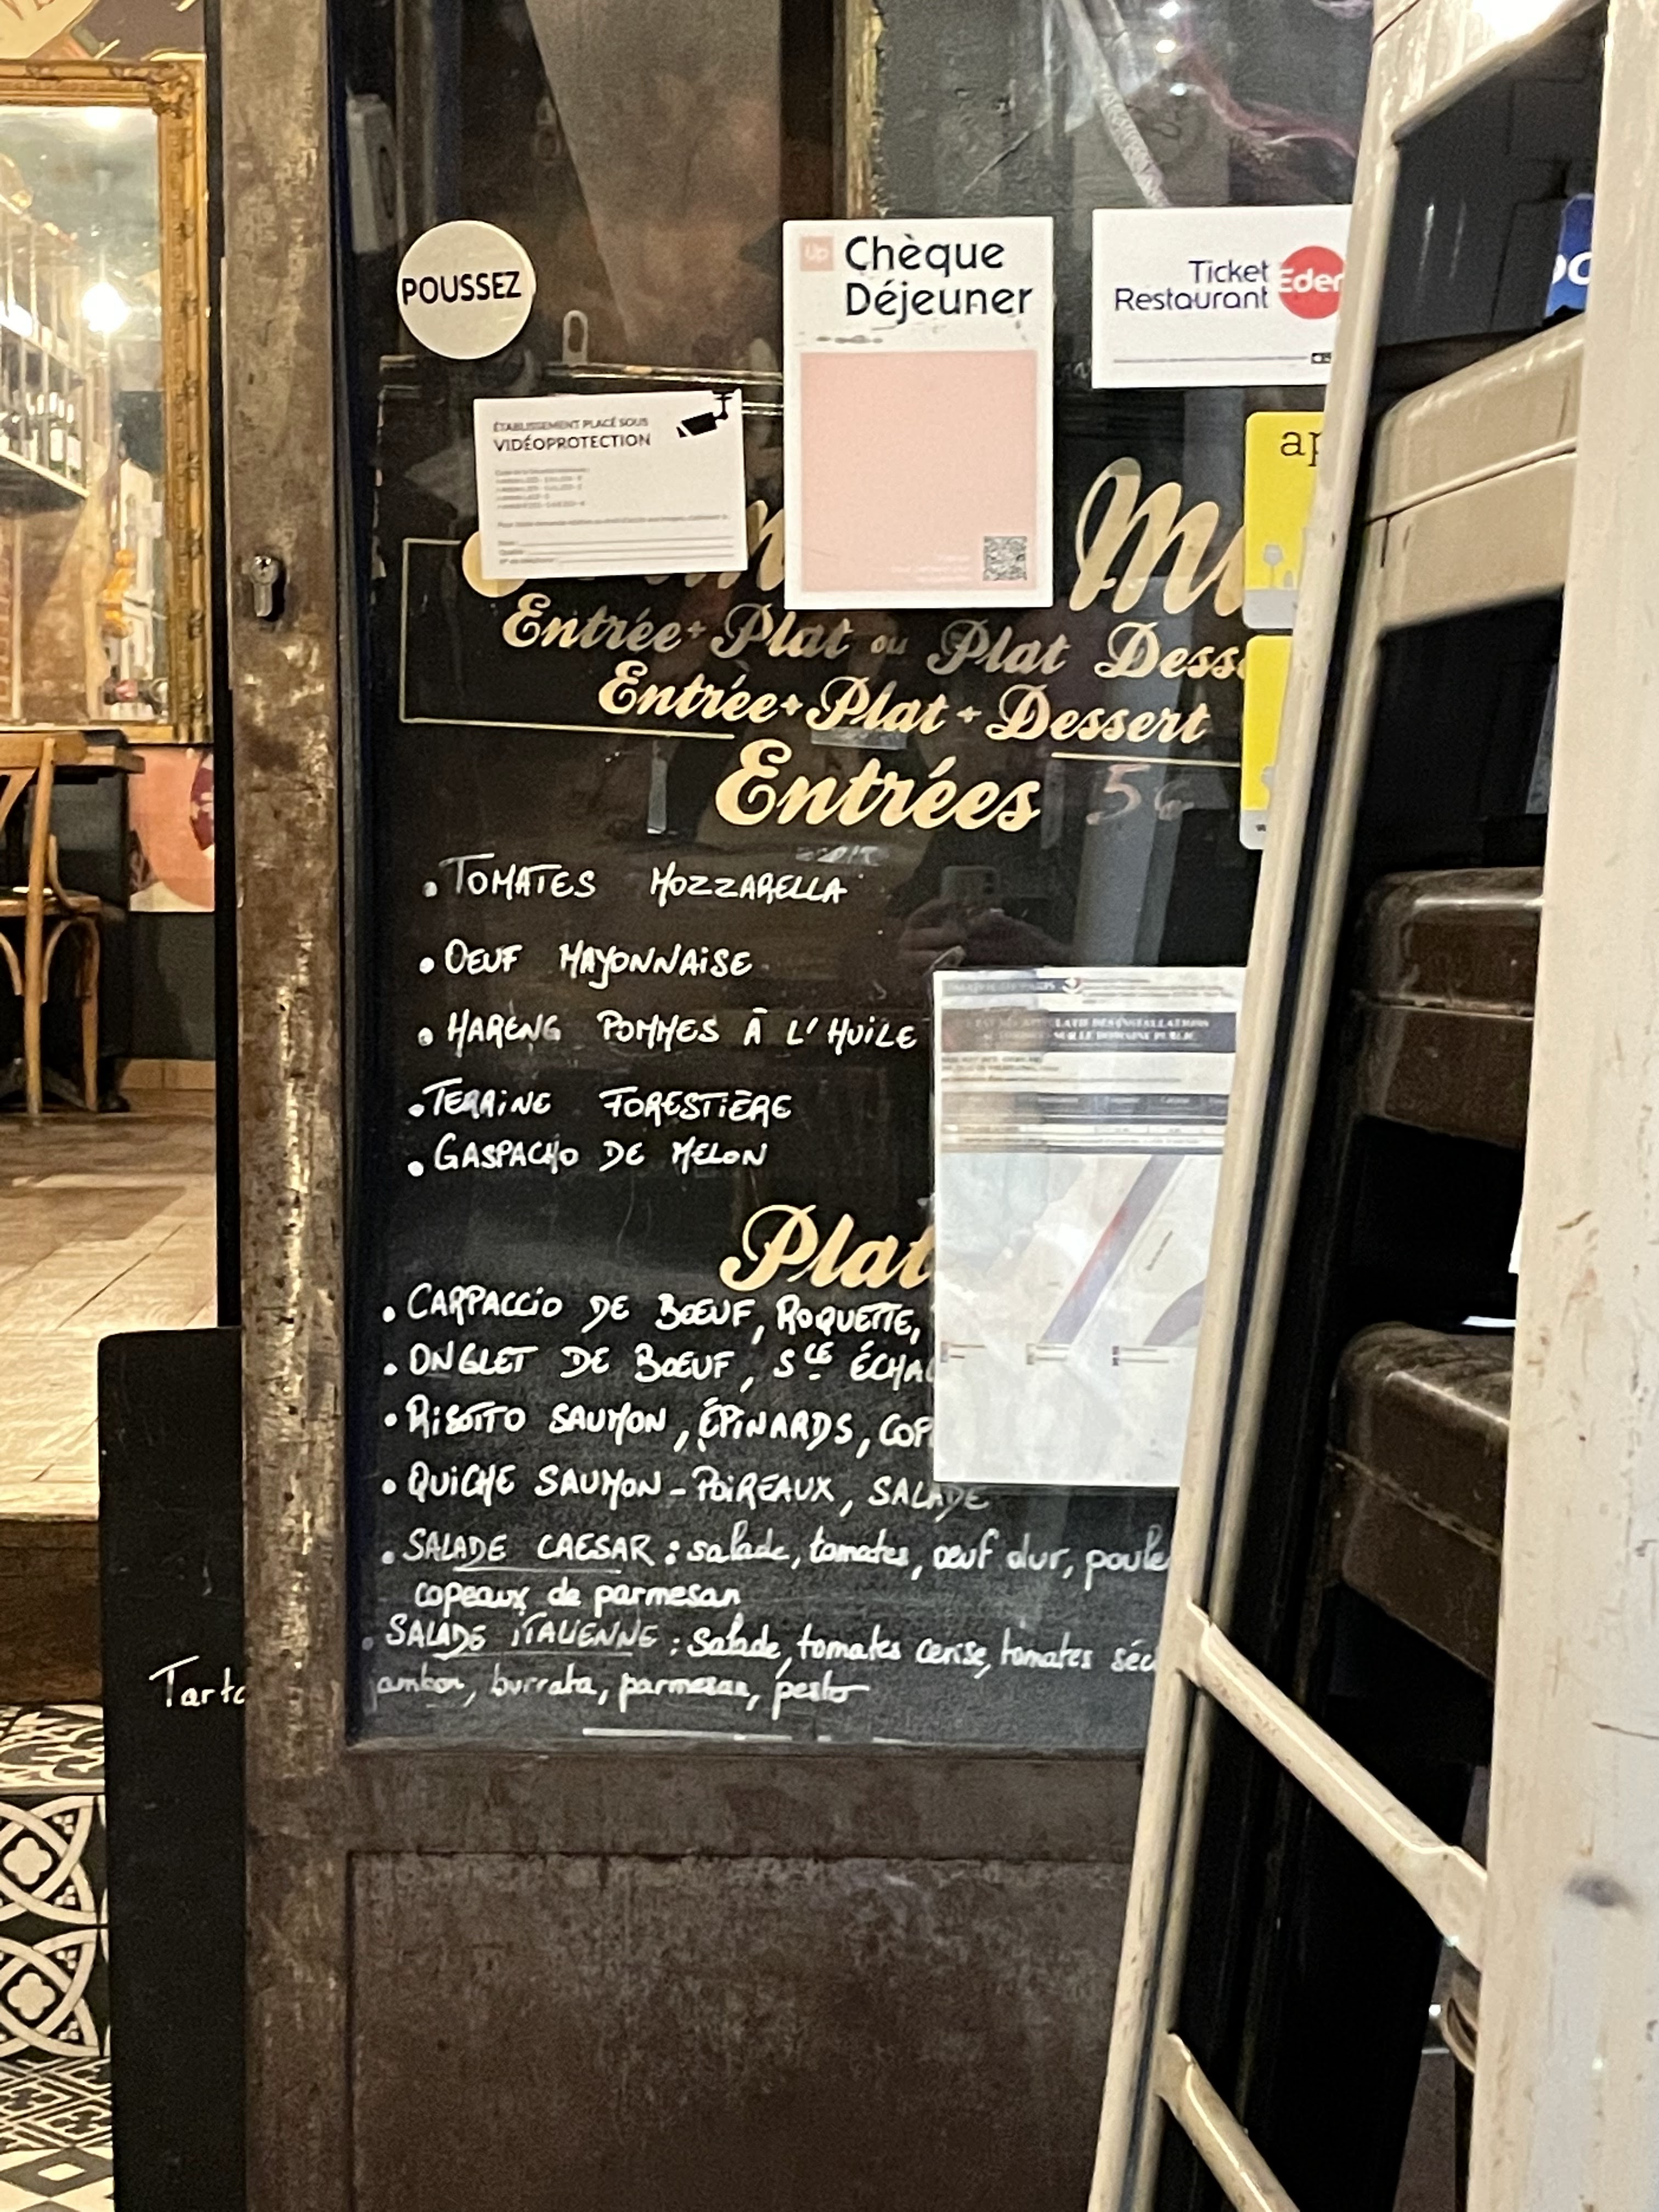 POUSSEZ
Chèque
Déjeuner
Ticket
Restaurant
Eden
ÉTABLISSEMENT PLACÉ SOUS
VIDÉOPROTECTION
Entrée + Plat ou Plat Dess
Entrée + Plat + Dessert
Entrées
• TOMATES MOZZARELLA
• OEUF MAYONNAISE
• HARENG POMMES À L'HUILE
• TERRINE FORESTIÈRE
• GASPACHO DE MELON
Plat
• CARPACCIO DE BŒUF, ROQUETTE,
• ONGLET DE BŒUF, SCE ÉCHAL
• RISOTTO SAUMON, ÉPINARDS, COP
• QUICHE SAUMON - POIREAUX, SALADE
• SALADE CAESAR : salade, tomates, œuf dur, poule
copeaux de parmesan
• SALADE ITALIENNE : salade, tomates cerise, tomates séc
jambon, burrata, parmesan, pesto
Tarta